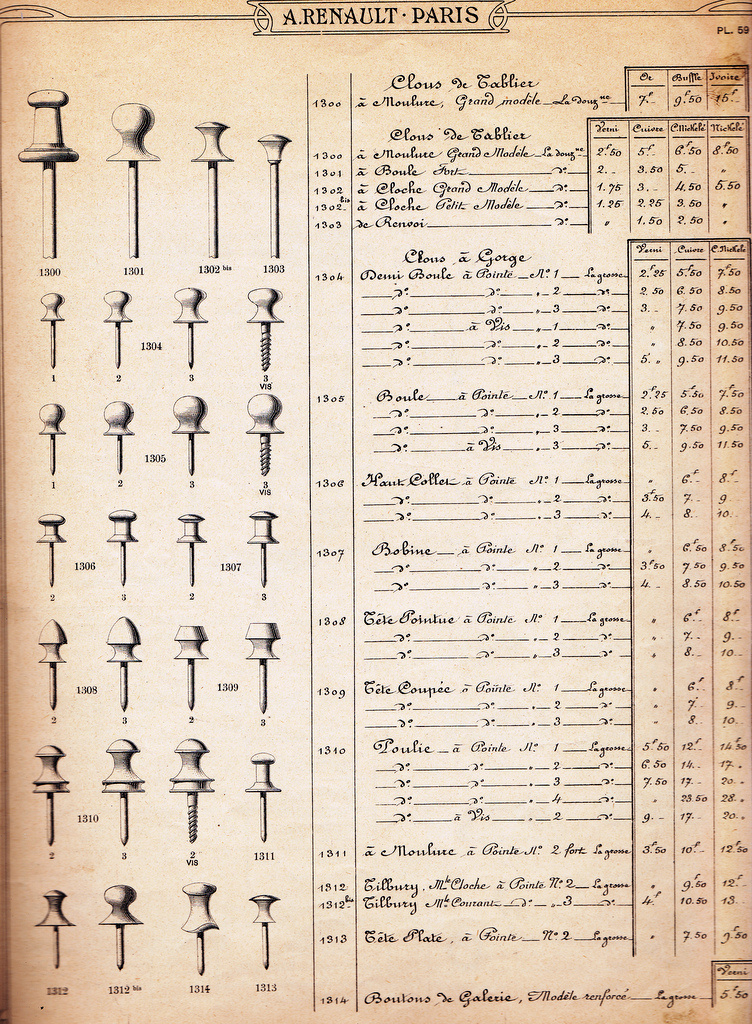 A. RENAULT · PARIS
PL. 59
Or Buffle Ivoire
Clous de Tablier
1300 à Moulure, Grand modèle La douz.ne 7f. 9f.50 15f.
Verni Cuivre C.Nickelé Nickelé
Clous de Tablier
1300 à Moulure Grand Modèle La douz.ne 2f.50 5f. 6f.50 8f.50
1301 à Boule Fort d.o 2. 3.50 5. "
1302 à Cloche Grand Modèle d.o 1.75 3. 4.50 5.50
1302 bis à Cloche Petit Modèle d.o 1.25 2.25 3.50 "
1303 de Renvoi d.o " 1.50 2.50 "
Verni Cuivre C.Nickel
Clous à Gorge
1304 Demi Boule à Pointe N.o 1 La grosse 2f.25 5f.50 7f.50
d.o d.o " 2 d.o 2.50 6.50 8.50
d.o d.o " 3 d.o 3. 7.50 9.50
d.o à Vis " 1 d.o " 7.50 9.50
d.o d.o " 2 d.o " 8.50 10.50
d.o d.o " 3 d.o 5. 9.50 11.50
1305 Boule à Pointe N.o 1 La grosse 2f.25 5f.50 7f.50
d.o d.o " 2 d.o 2.50 6.50 8.50
d.o d.o " 3 d.o 3. 7.50 9.50
d.o à Vis " 3 d.o 5. 9.50 11.50
1306 Haut Collet à Pointe N.o 1 La grosse " 6f. 8f.
d.o d.o " 2 d.o 3f.50 7. 9
d.o d.o " 3 d.o 4. 8. 10.
1307 Bobine à Pointe N.o 1 La grosse " 6f.50 8f.50
d.o d.o " 2 d.o 3f.50 7.50 9.50
d.o d.o " 3 d.o 4. 8.50 10.50
1308 Tête Pointue à Pointe N.o 1 La grosse " 6f. 8f.
d.o d.o " 2 d.o " 7. 9.
d.o d.o " 3 d.o " 8. 10.
1309 Tête Coupée à Pointe N.o 1 La grosse " 6f. 8f.
d.o d.o " 2 d.o " 7. 9.
d.o d.o " 3 d.o " 8. 10.
1310 Poulie à Pointe N.o 1 La grosse 5f.50 12f. 14f.50
d.o d.o " 2 d.o 6.50 14. 17.
d.o d.o " 3 d.o 7.50 17. 20.
d.o d.o " 4 d.o " 23.50 28.
d.o à Vis " 2 d.o 9. 17. 20.
1311 à Moulure à Pointe N.o 2 fort La grosse 3f.50 10f. 12f.50
1312 Tilbury, M.le Cloche à Pointe N.o 2 La grosse " 9f.50 12f.
1312 bis Tilbury M.le Courant d.o " 3 d.o 4f. 10.50 13.
1313 Tête Plate, à Pointe N.o 2 La grosse " 7.50 9f.50
Verni
1314 Boutons de Galerie, Modèle renforcé La grosse 5f.50
1300 1301 1302 bis 1303
1304
1 2 3 3
VIS
1305
1 2 3 3
VIS
1306 1307
2 3 2 3
1308 1309
2 3 2 3
1310
2 3 2 1311
VIS
1312 1312 bis 1314 1313